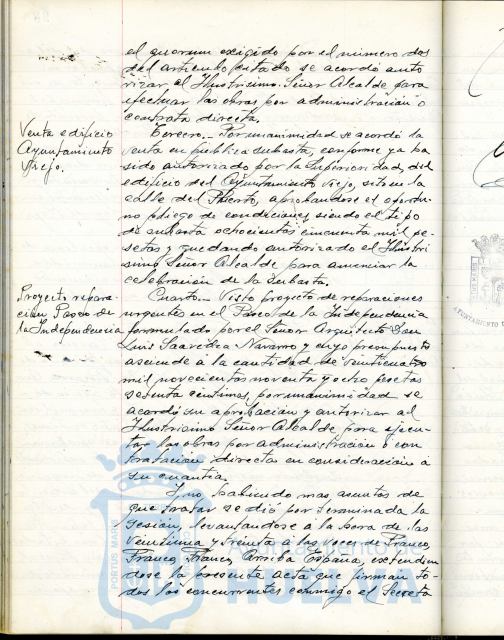 el quorum exigido por el numero dos
del articulo citado se acordó auto
rizar al Ilustrisimo Señor Alcalde para
efectuar las obras por administracion o
contrata directa.
Venta edificio
Ayuntamiento
Viejo.
Tercero.- Por unanimidad se acordó la
venta en publica subasta, conforme ya ha
sido autorizado por la Superioridad, del
edificio del Ayuntamiento Viejo, sito en la
calle del Puerto, aprobandose el oportu-
no pliego de condiciones, siendo el tipo
de subasta ochocientas cincuenta mil pe-
setas y quedando autorizado el Ilustri
simo Señor Alcalde para anunciar la
celebración de la Subasta.
Proyecto repara-
ción Paseo de
la Independencia
Cuarto.- Visto proyecto de reparaciones
urgentes en el Paseo de la Independencia
formulado por el Señor Arquitecto Don
Luis Saavedra Navarro y cuyo presupuesto
asciende á la cantidad de veinticuatro
mil novecientos noventa y ocho pesetas
setenta centimos, por unanimidad se
acordó su aprobacion y autorizar al
Ilustrisimo Señor Alcalde para ejecu-
tar las obras por administración o con
tratacion directa en consideración á
su cuantia.
Y no habiendo mas asuntos de
que tratar se dió por terminada la
sesión, levantandose á la hora de las
veintiuna y treinta a las voces de Franco,
Franco, Franco, Arriba España, extendien
dose la presente acta que firman to-
dos los concurrentes conmigo el Secreta
PORTUS MARIS
Ayuntamiento de
HUELVA